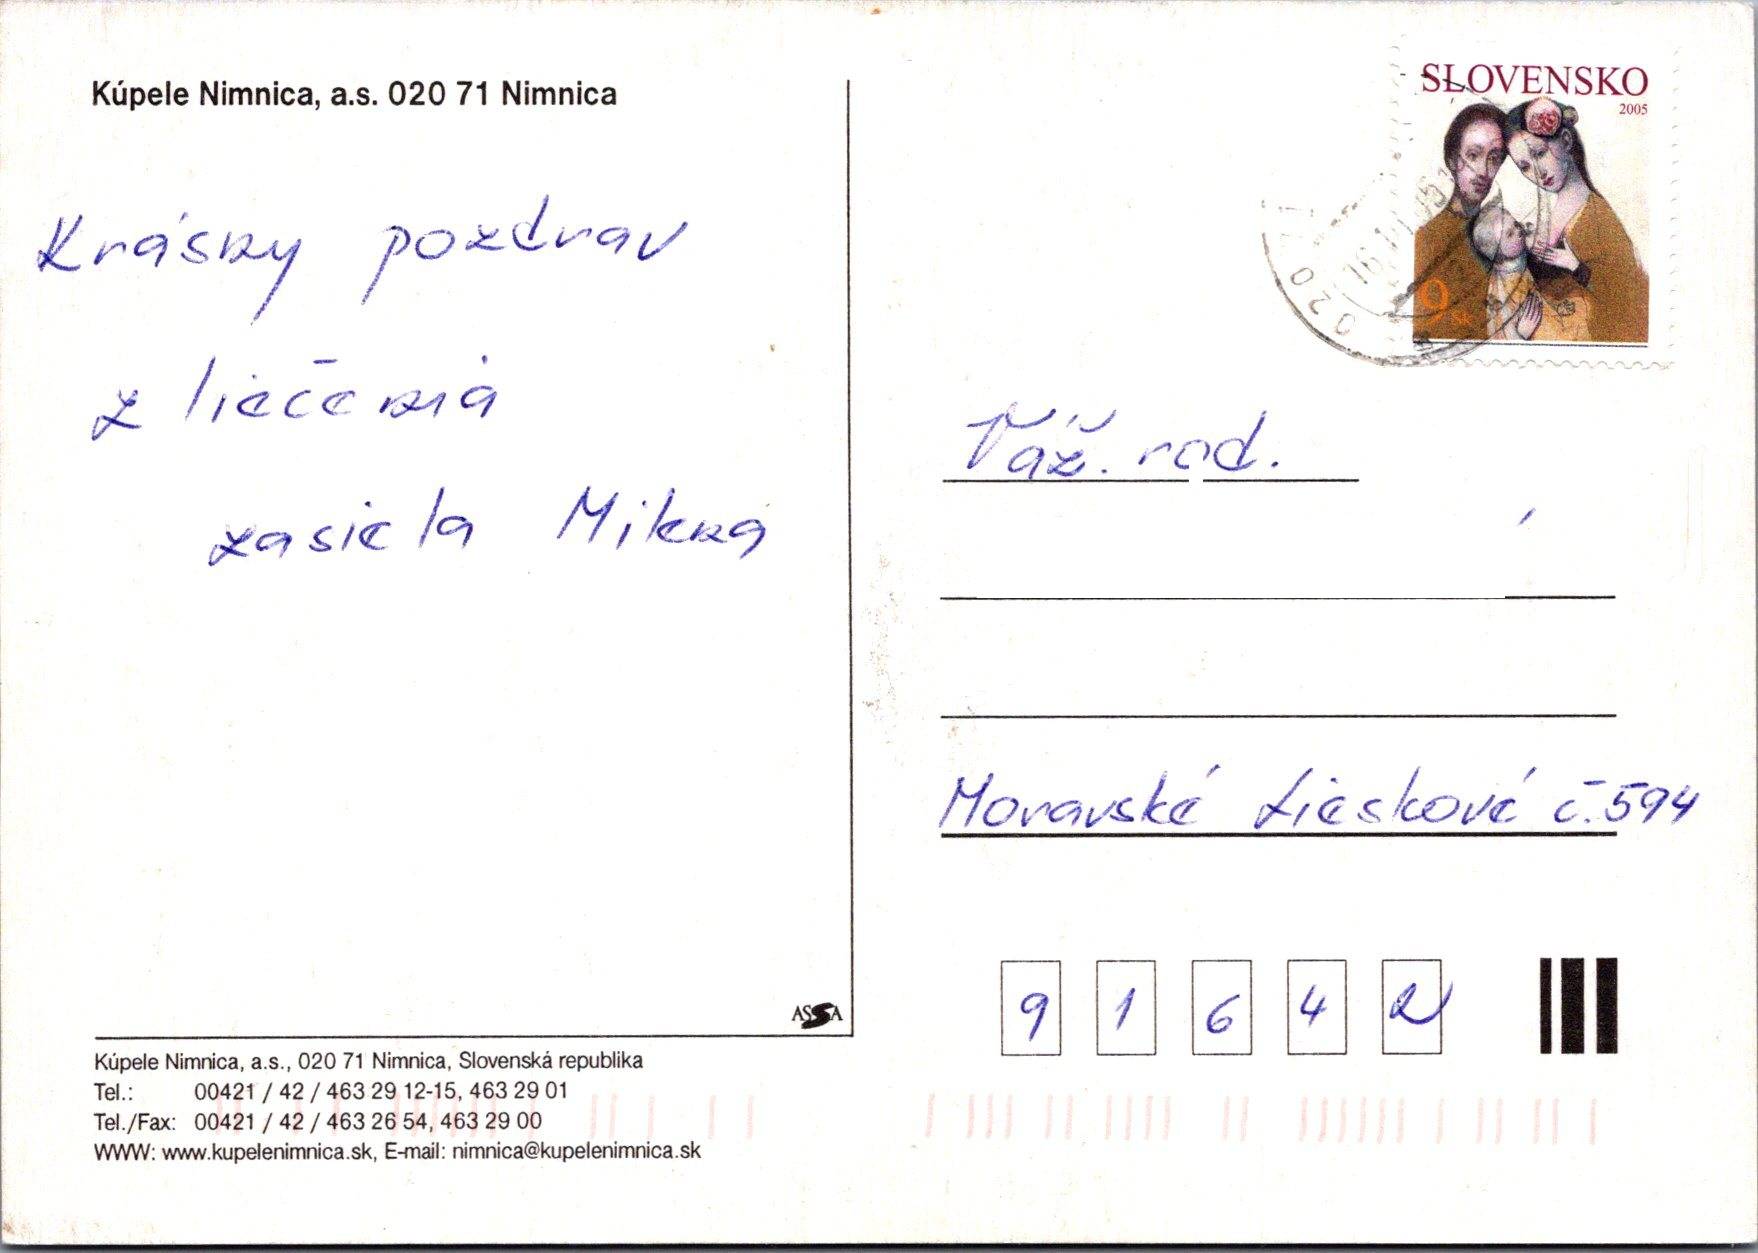 Kúpele Nimnica, a.s. 020 71 Nimnica
Krásny pozdrav
z liečenia
zasiela
SLOVENSKO
2005
9 Sk
020
Váž. rod.
Moravské Lieskové č. 594
9 1 6 4 2
ASSA
Kúpele Nimnica, a.s., 020 71 Nimnica, Slovenská republika
Tel.: 00421 / 42 / 463 29 12-15, 463 29 01
Tel./Fax: 00421 / 42 / 463 26 54, 463 29 00
WWW: www.kupelenimnica.sk, E-mail: nimnica@kupelenimnica.sk